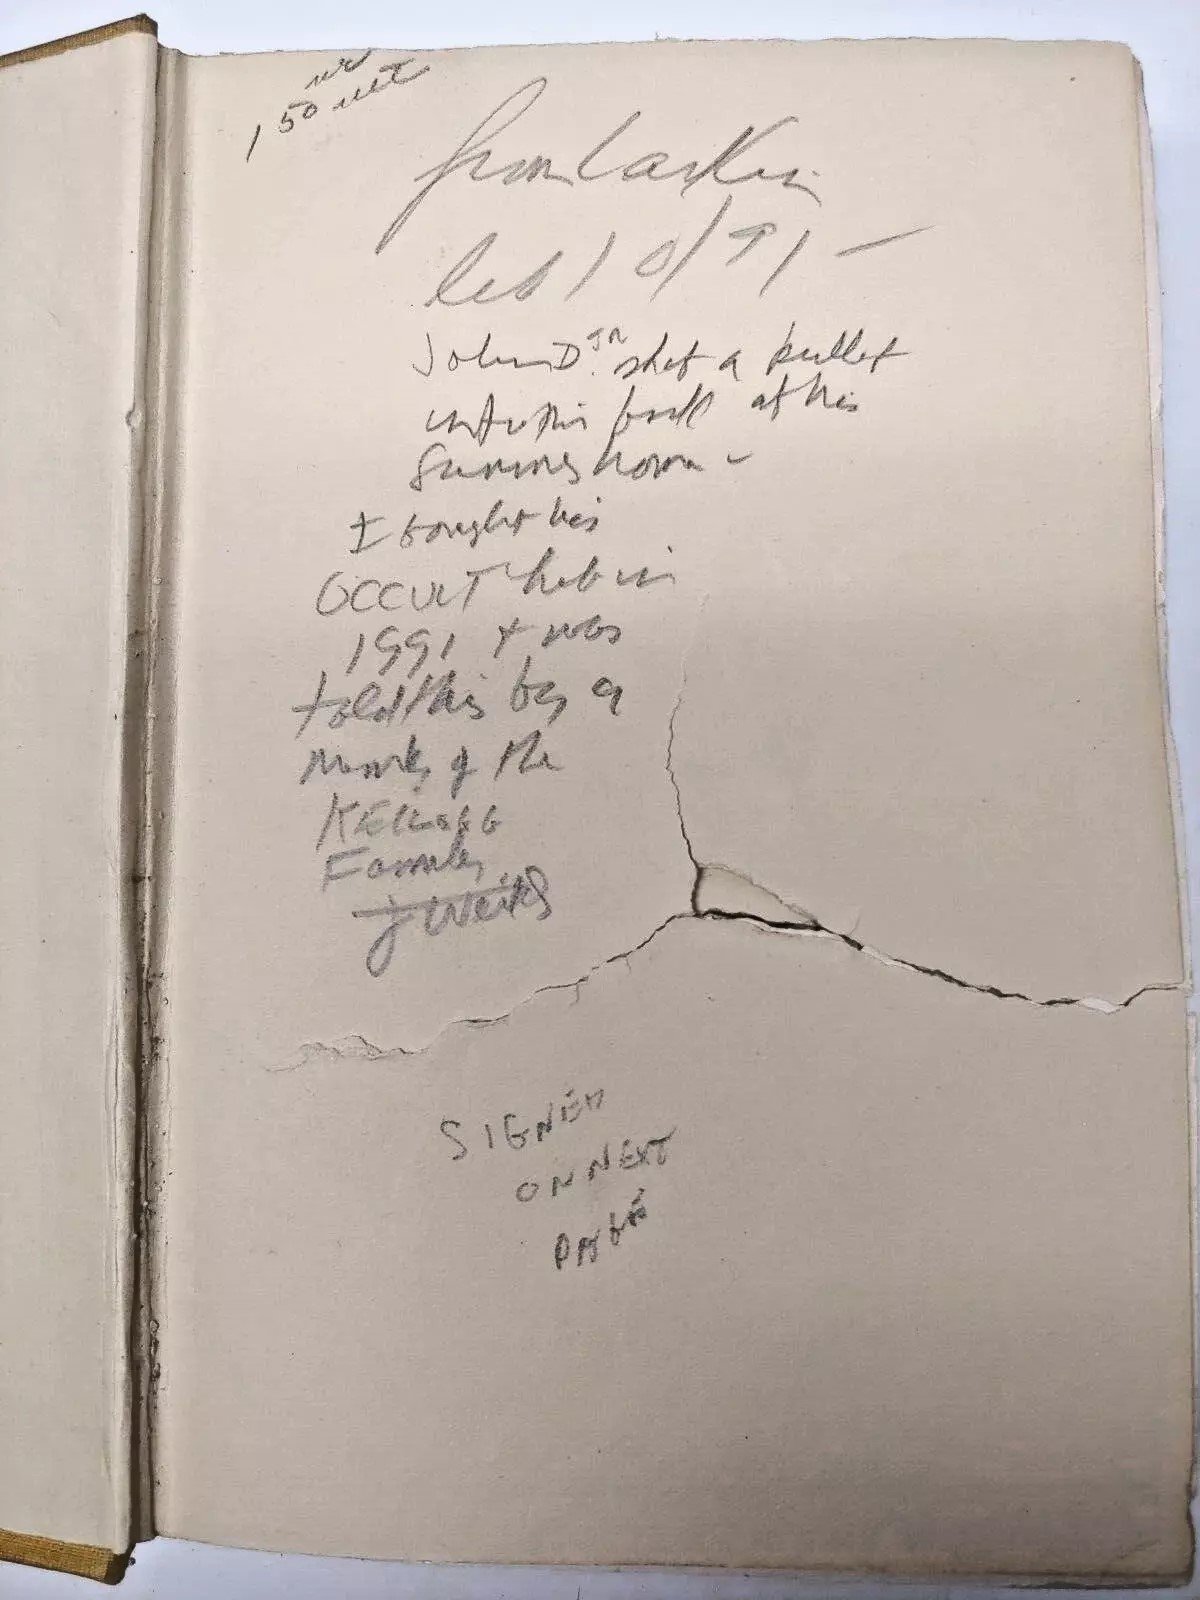 150
from Larkin
10/91 -
John D. JR shot a bullet
into this book at his
Summer home -
I bought his
OCCULT lib in
1991 + was
told this by a
of the
KELLOGG
Family
J Weiss
SIGNED
ON NEXT
PAGE